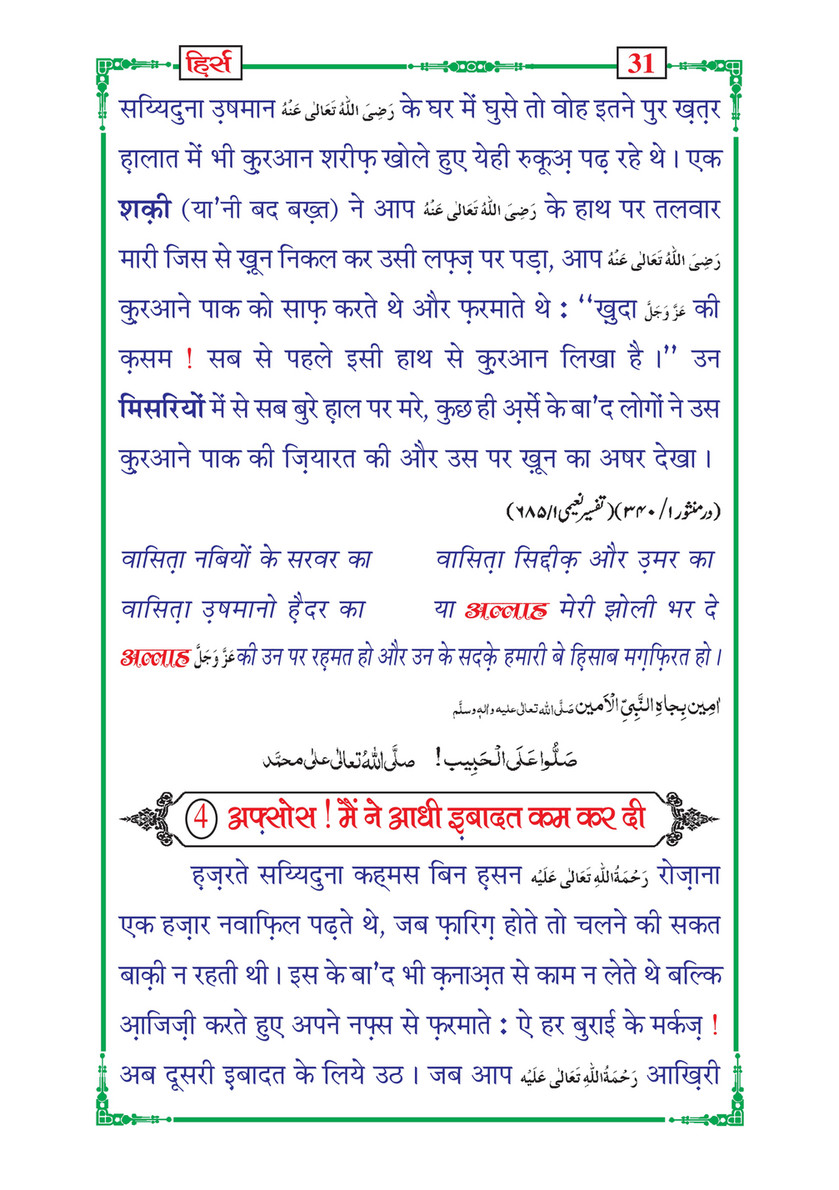 हिर्स 31
सय्यिदुना उ़षमान رَضِیَ اللّٰہُ تَعَالٰی عَنْہُ के घर में घुसे तो वोह इतने पुर ख़त़र
ह़ालात में भी क़ुरआन शरीफ़ खोले हुए येही रुकूअ़ पढ़ रहे थे । एक
शक़ी (या'नी बद बख़्त) ने आप رَضِیَ اللّٰہُ تَعَالٰی عَنْہُ के हाथ पर तलवार
मारी जिस से ख़ून निकल कर उसी लफ़्ज़ पर पड़ा, आप رَضِیَ اللّٰہُ تَعَالٰی عَنْہُ
क़ुरआने पाक को साफ़ करते थे और फ़रमाते थे : ‘‘ख़ुदा عَزَّ وَجَلَّ की
क़सम ! सब से पहले इसी हाथ से क़ुरआन लिखा है ।’’ उन
मिसरियों में से सब बुरे ह़ाल पर मरे, कुछ ही अ़र्से के बा'द लोगों ने उस
क़ुरआने पाक की ज़ियारत की और उस पर ख़ून का अषर देखा ।
(درمنثور ۱/ ۳۴۰)(تفسیر نعیمی ۶۸۵/۱)
वासित़ा नबियों के सरवर का वासित़ा सिद्दीक़ और उ़मर का
वासित़ा उ़षमानो ह़ैदर का या अल्लाह मेरी झोली भर दे
अल्लाह عَزَّ وَجَلَّ की उन पर रह़मत हो और उन के सदक़े हमारी बे ह़िसाब मग़फ़िरत हो ।
اٰمِین بِجَاہِ النَّبِیِّ الْاَمین صَلَّی اللہ تعالٰی علیہ واٰلہٖ وسلَّم
صَلُّوا عَلَی الْحَبِیب ! صلَّی اللّٰہُ تعالٰی علٰی محمَّد
4 अफ़्सोस ! मैं ने आधी इ़बादत कम कर दी
ह़ज़रते सय्यिदुना कह्मस बिन ह़सन رَحْمَۃُ اللّٰہِ تَعَالٰی عَلَیْہ रोज़ाना
एक हज़ार नवाफ़िल पढ़ते थे, जब फ़ारिग़ होते तो चलने की सकत
बाक़ी न रहती थी । इस के बा'द भी क़नाअ़त से काम न लेते थे बल्कि
आ़जिज़ी करते हुए अपने नफ़्स से फ़रमाते : ऐ हर बुराई के मर्कज़ !
अब दूसरी इ़बादत के लिये उठ । जब आप رَحْمَۃُ اللّٰہِ تَعَالٰی عَلَیْہ आख़िरी